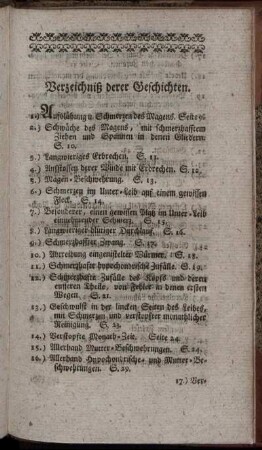 Verzeichniß derer Geschichten.
1.) Aufblähung u. Schmerzen des Magens. Seite 9
2.) Schwäche des Magens, mit schmerzhafftem
Ziehen und Spannen in denen Gliedern
S. 10.
3.) Langwieriges Erbrechen. S. 11.
4.) Aufstossen derer Winde mit Erbrechen. S. 12.
5.) Magen-Beschwehrung. S. 13.
6.) Schmerzen im Unter-Leib auf einem gewissen
Fleck. S. 14.
7.) Besonderer, einen gewissen Platz im Unter-Leib
einnehmender Schmerz. S. 15.
8.) Langwieriger-blutiger Durchlauf. S. 16.
9.) Schmerzhaffter Zwang. S. 17.
10.) Abtreibung eingenistelter Würmer. S. 18.
11.) Schmerzhaffte hypochondrische Zufälle. S. 19.
12.) Schmerzhafte Zufälle des Kopfs und derer
äusseren Theile, von Fehler in denen ersten
Wegen. S. 21.
13.) Geschwulst in der lincken Seiten des Leibes,
mit Schmerzen und verstopfter monathlicher
Reinigung. S. 23.
14.) Verstopfte Monath-Zeit. Seite 24.
15.) Allerhand Mutter-Beschwehrungen. S. 24.
16.) Allerhand Hypochondrische- und Mutter-Be-
schwehrungen. S. 29.
17.) Ver-